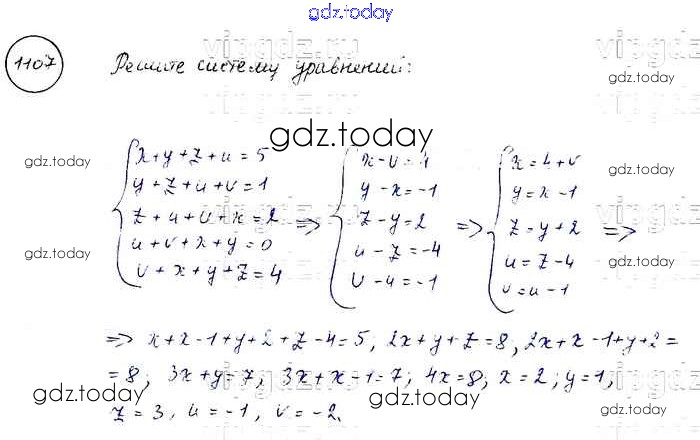 gdz.today
1107 Решите систему уравнений:
gdz.today
gdz.today
gdz.today
x+y+z+u=5
y+z+u+v=1
z+u+v+x=2
u+v+x+y=0
v+x+y+z=4
=>
x-v=4
y-x=-1
z-y=2
u-z=-4
v-u=-1
=>
x=4+v
y=x-1
z=y+2
u=z-4
v=u-1
=>
gdz.today
gdz.today
gdz.today
gdz.today
=> x+x-1+y+2+z-4=5, 2x+y+z=8, 2x+x-1+y+2=
=8; 3x+y=7, 3x+x-1=7; 4x=8; x=2; y=1,
z=3, u=-1, v=-2.
gdz.today
gdz.today
gdz.today